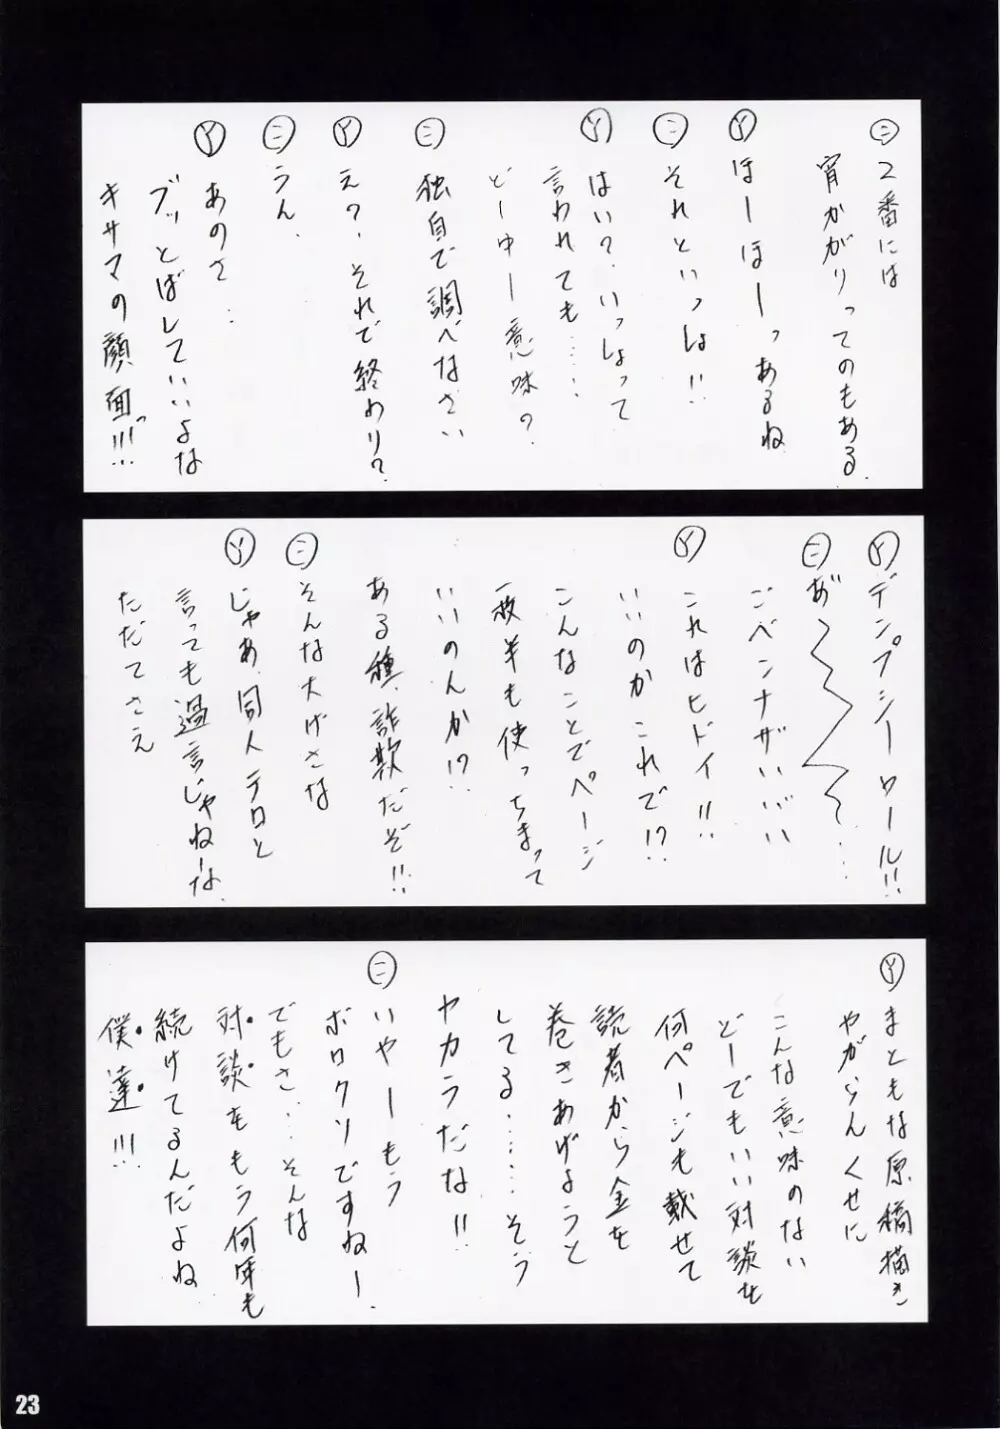 ㊁2番には
宵かがりってのもある
Ⓨほーほーっあるね
㊁それといっしょ!!
Ⓨはい?、いっしょって
言われても……
どーゆー意味?
㊁独自で調べなさい
Ⓨえ?、それで終わり?
㊁うん、
Ⓨあのさ…
ブッとばしていいよな
キサマの顔面っ!!!
Ⓨデンプシーロール!!
㊁あ゛〜〜〜…
ごベンナザいいバい
Ⓨこれはヒドイ!!
いいのかこれで!?
こんなことでページ
一枚半も使っちまって
いいのんか!?
ある種、詐欺だぞ!!
㊁そんな大げさな
Ⓨじゃあ、同人テロと
言っても過言じゃねーな、
ただてさえ
Ⓨまともな原稿描き
やがらんくせに
こんな意味のない
どーでもいい対談を
何ページも載せて
読者から金を
巻きあげようと
してる……そう
ヤカラだな!!
㊁いやーもう
ボロクソですねー、
でもさ…そんな
対談をもう何年も
続けてるんだよね
僕達!!!
23